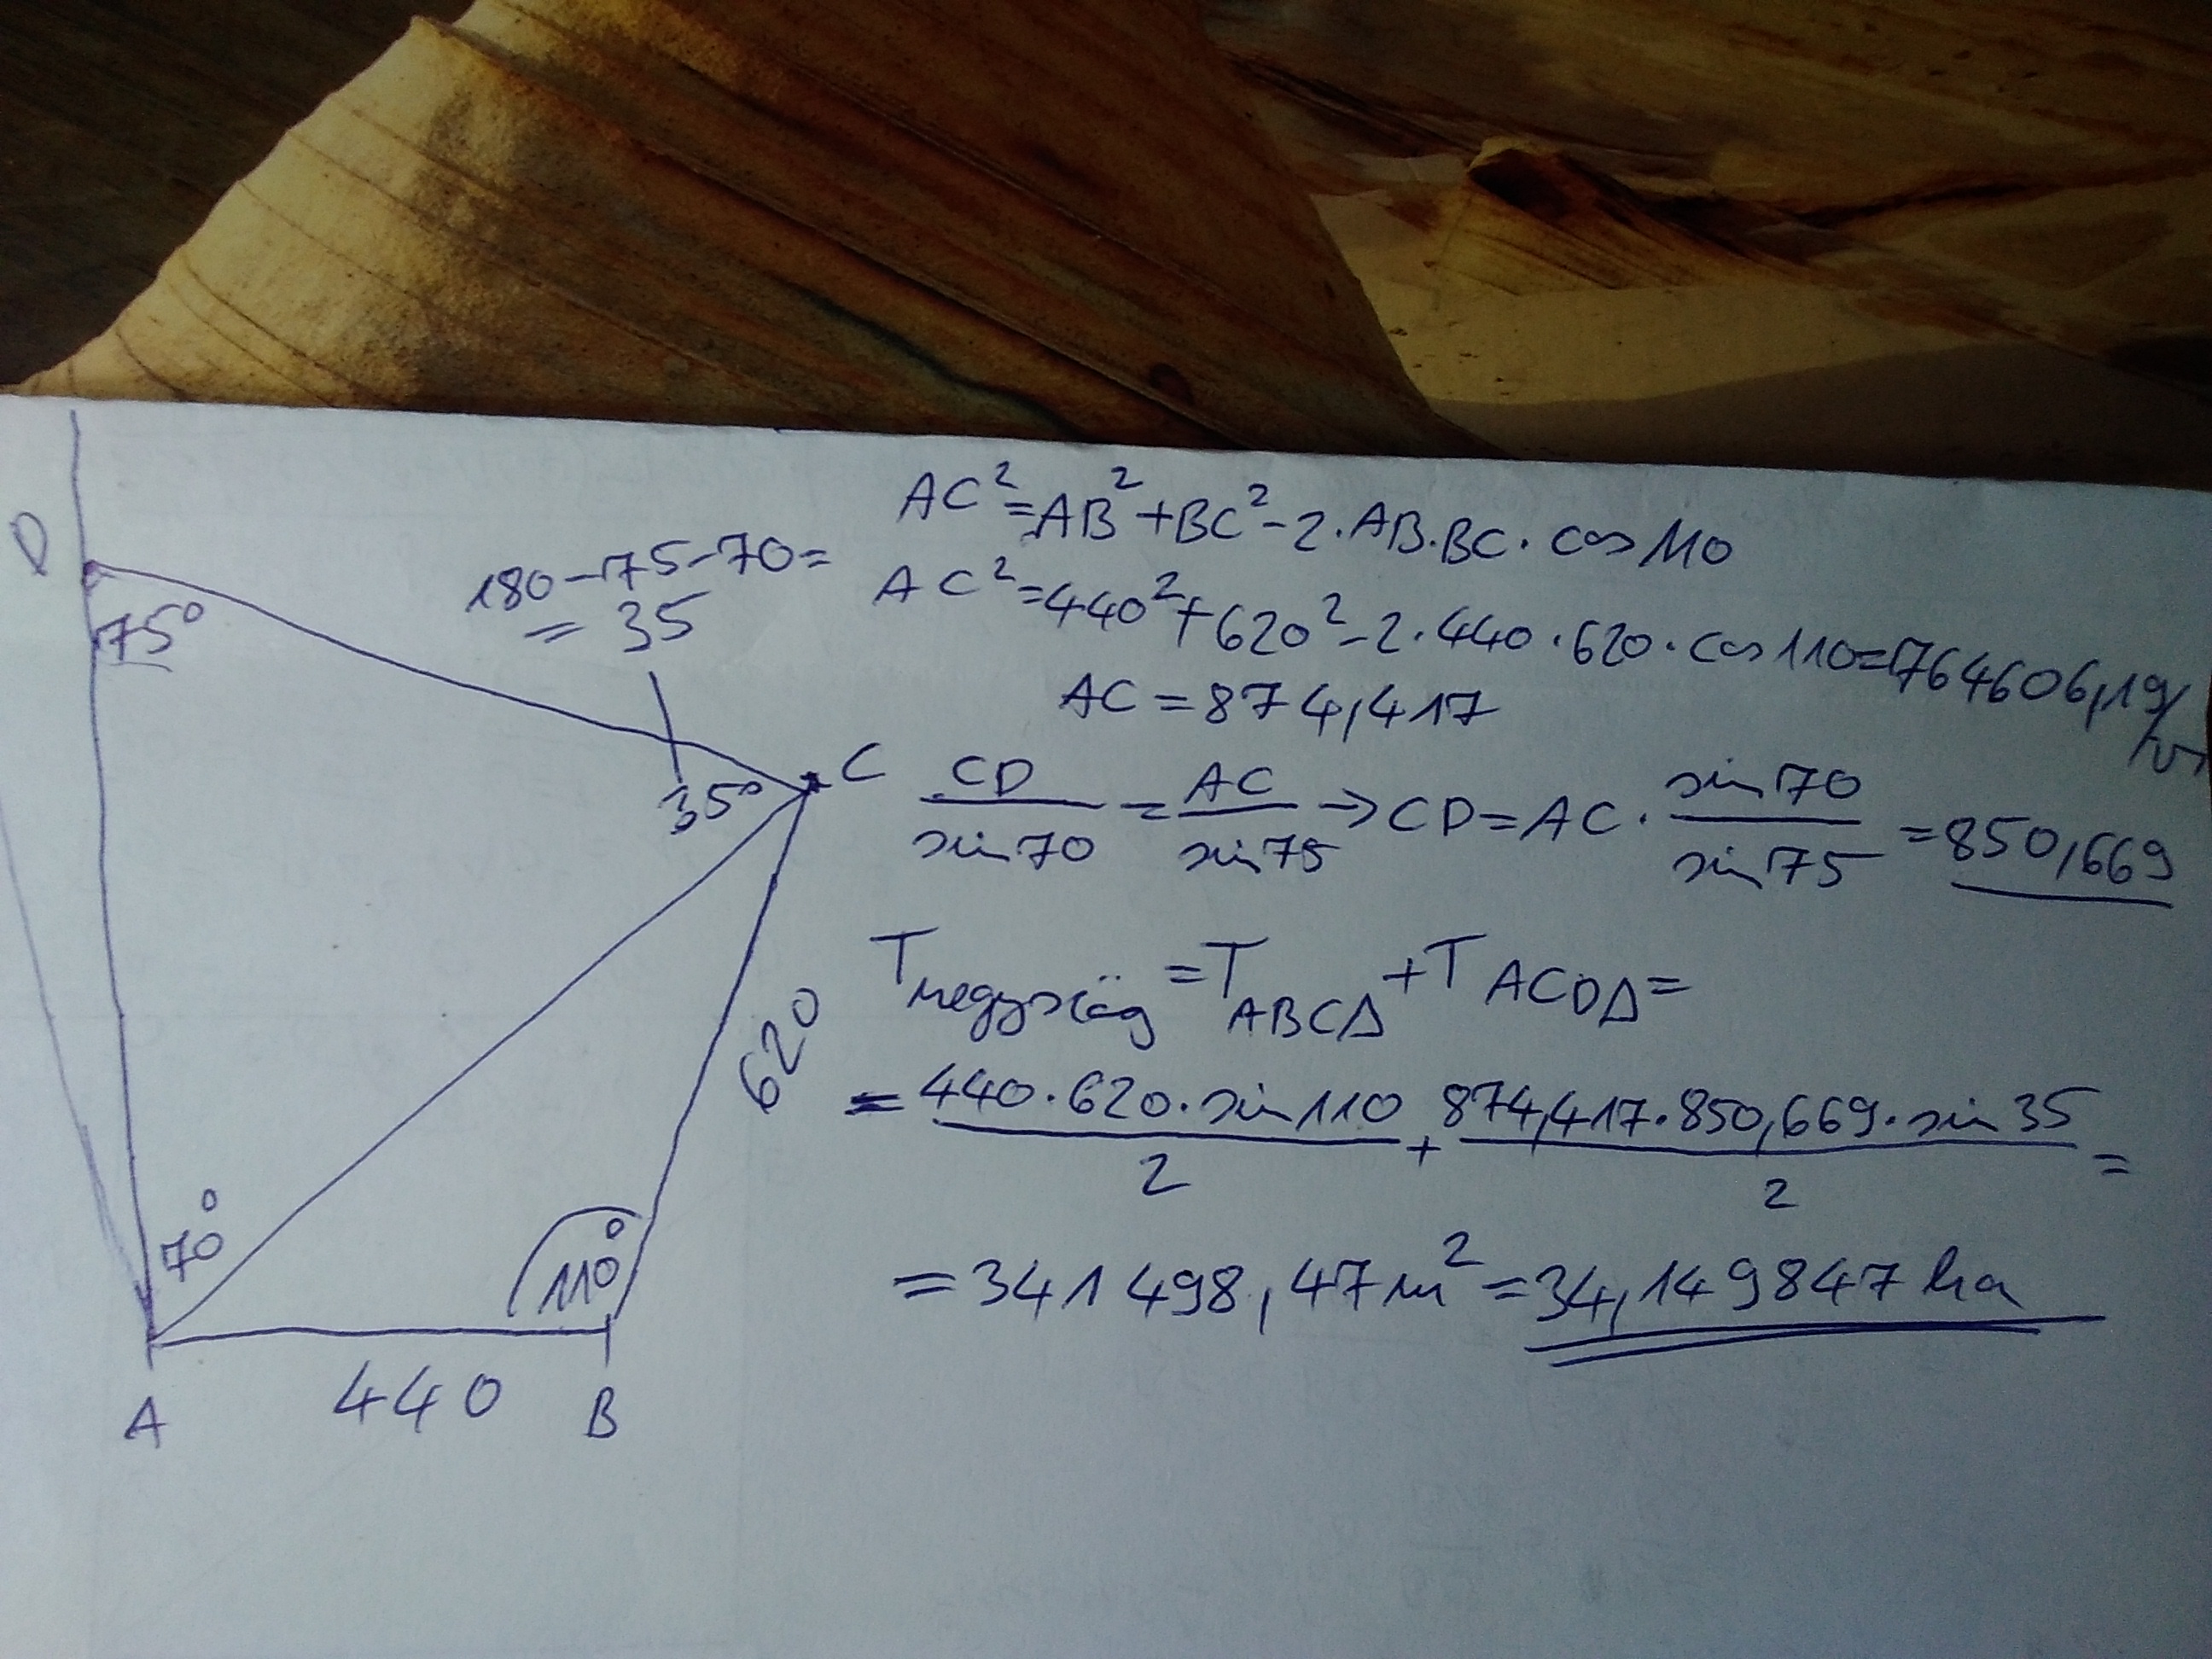 D
75°
180-75-70=
= 35
35°
C
620
70°
110°
440
A
B
AC²=AB²+BC²-2·AB·BC·cos110
AC²=440²+620²-2·440·620·cos110=764606,19/√
AC=874,417
CD/sin70 = AC/sin75 → CD=AC·sin70/sin75 =850,669
Tnégyszög =T ABCΔ +T ACDΔ=
= 440·620·sin110/2 + 874,417·850,669·sin35/2 =
=341498,47m²=34,149847ha